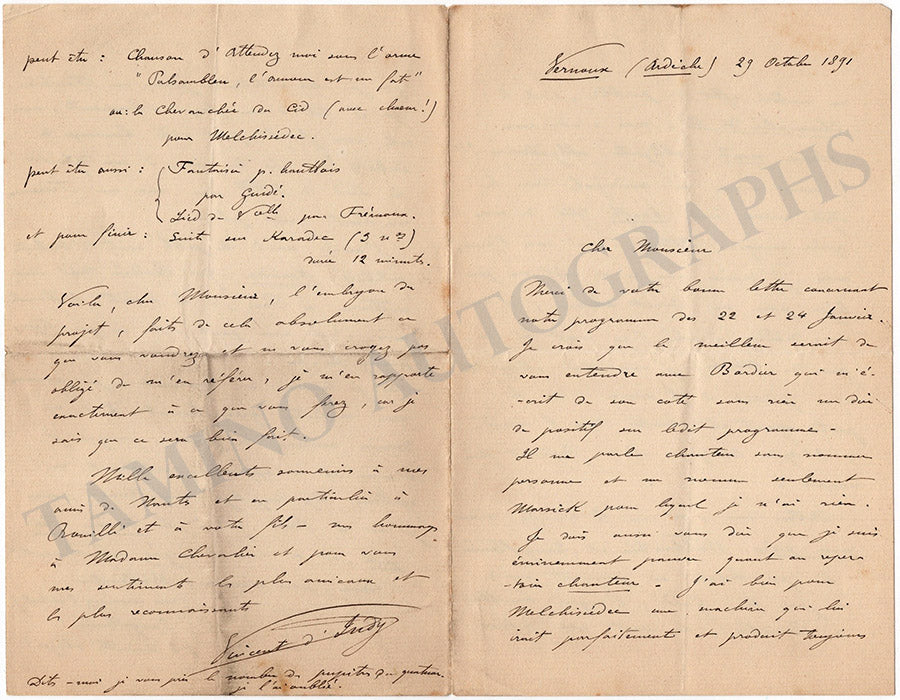 Vernoux (Ardèche) 29 Octobre 1891
Cher Monsieur
Merci de votre bonne lettre concernant
notre programme des 22 et 24 Janvier.
Je crois que le meilleur serait de
vous entendre avec Bordier qui m'é-
-crit de son coté sans rien me dire
de positif sur ledit programme -
Il me parle chanteur sans nommer
personne et me nomme seulement
Marsick pour lequel je n'ai rien.
Je dois aussi vous dire que je suis
éminemment pauvre quant au reper-
-toire chanteur - J'ai bien pour
Melchissédec une machine qui lui
irait parfaitement et produit toujours
peut être : Chanson d'Attendez moi sous l'orme
"Palsambleu, l'amour est un fat"
ou : la Chevauchée du Cid (avec chœur!)
pour Melchissédec.
peut être aussi : Fantaisie p. hautbois
par Guidé.
Lied de Velle pour Frémaux.
et pour finir : Suite sur Karadec (3 nos)
durée 12 minutes.
Voilà, cher Monsieur, l'embryon du
projet, faites de cela absolument ce
que vous voudrez et ne vous croyez pas
obligé de m'en référer, je m'en rapporte
exactement à ce que vous ferez, car je
sais que ce sera bien fait.
Mille excellents souvenirs à mes
amis de Nantes et en particulier à
Rouillé et à votre fils - mes hommages
à Madame Chevalier et pour vous
mes sentiments les plus amicaux et
les plus reconnaissants
Vincent d'Indy
Dites-moi je vous prie le nombre de pupitres du quatuor.
je l'ai oublié.
TAMINO AUTOGRAPHS